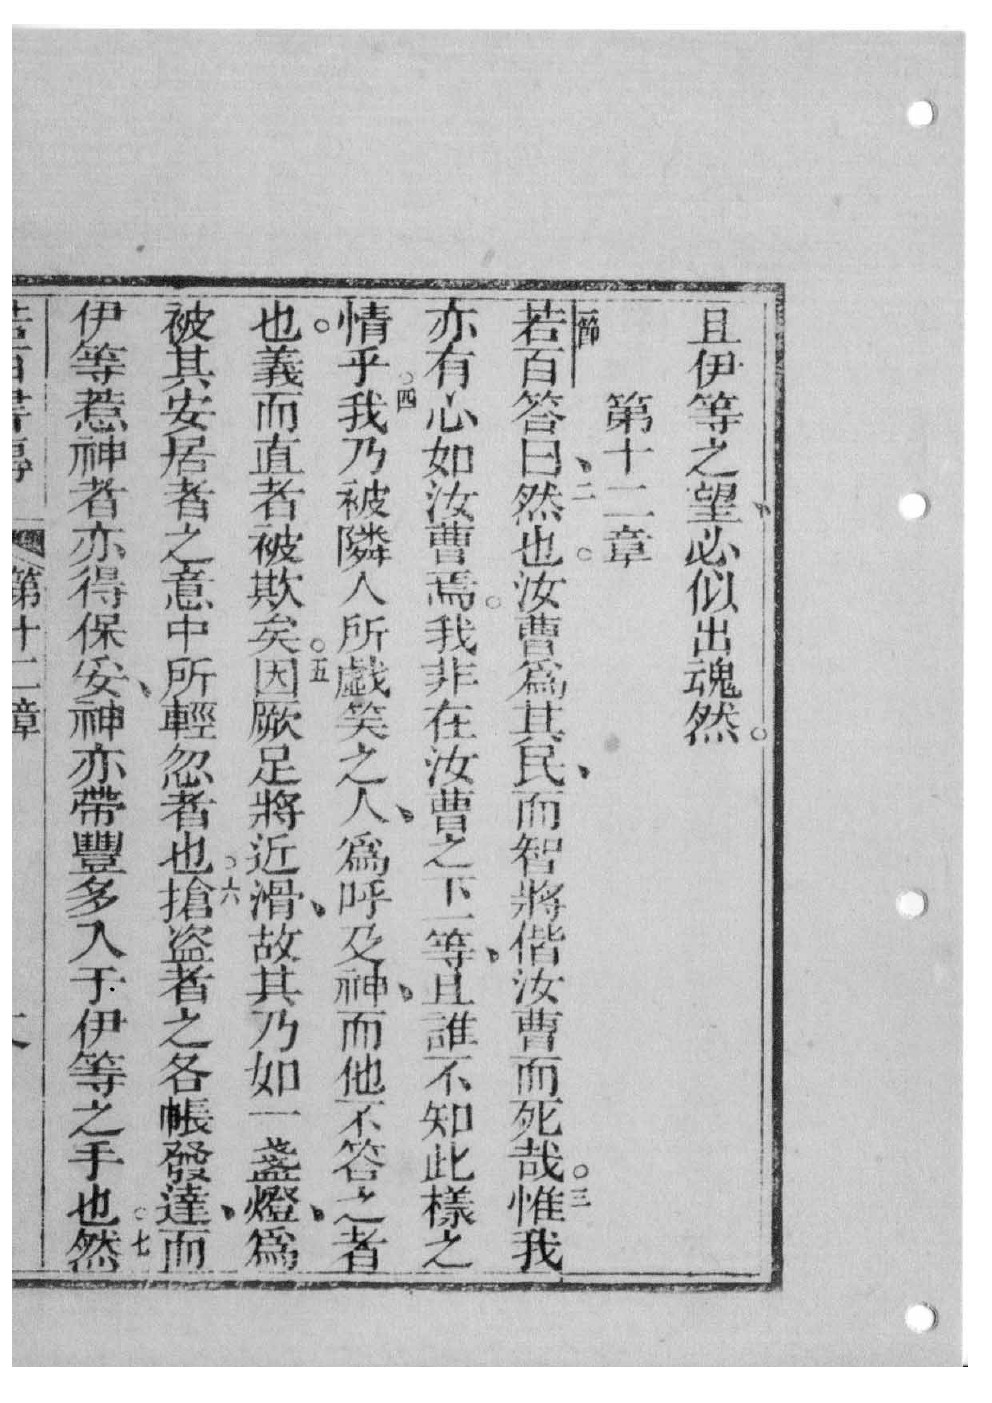 且伊等之望、必似出魂然。
第十二章
一節
若百答曰、二然也。汝曹爲其民、而智將偕汝曹而死哉。三惟我
亦有心如汝曹焉。我非在汝曹之下一等、且誰不知此樣之
情乎。四我乃被隣人所戲笑之人、爲呼及神、而他不答之者
也。義而直者被欺矣。五因厥足將近滑、故其乃如一盞燈、爲
被其安居者之意中所輕忽者也。六搶盜者之各帳發達、而
伊等惹神者亦得保妥、神亦帶豐多入于伊等之手也。七然
第十二章